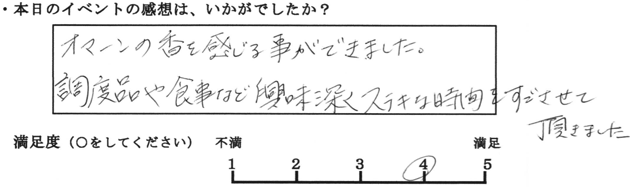 ・本日のイベントの感想は、いかがでしたか？
オマーンの香を感じる事ができました。
調度品や食事など興味深くステキな時間をすごさせて
頂きました
満足度（○をしてください） 不満 満足
1 2 3 4 5